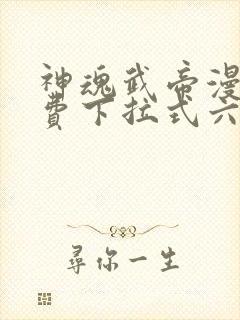 神魂武帝漫
费下拉式六
寻你一生